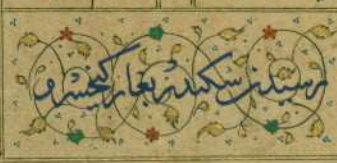 رسیدن سکندر بغار کیخسرو